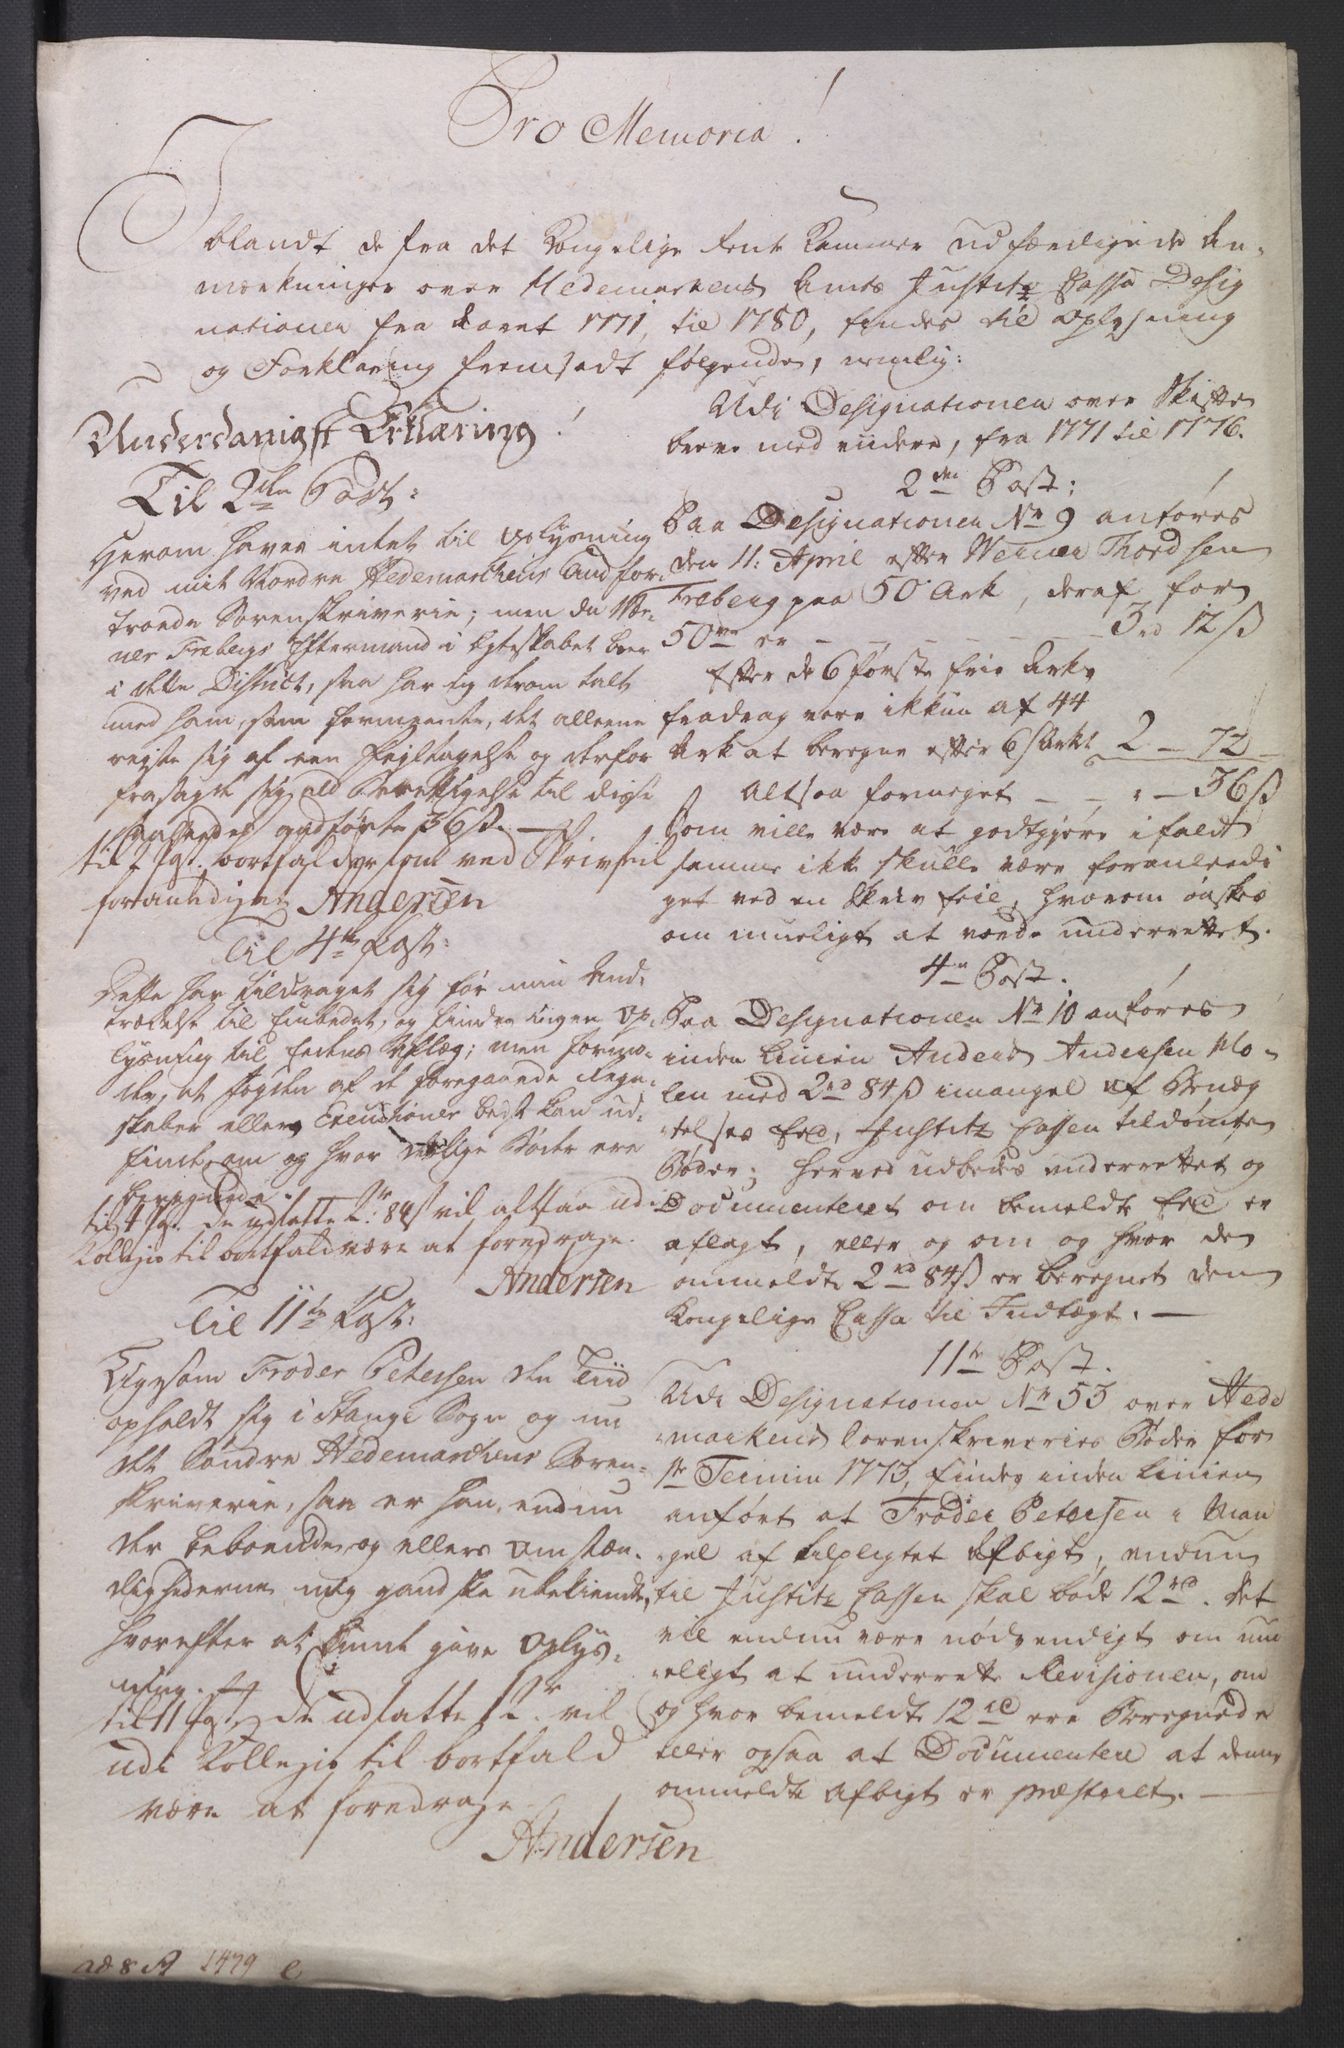 Pro Memoria!
Iblandt de fra det Kongelige Rente Kammer udfærdigede An-
mærkninger over Hedemarkens Amts Justitz Cassa Desig
nationer fra Aaret 1771, til 1780, findes til Oplysning
og Forklaring fremsadt følgende, nemlig:
Udi Designationen over Skifte
breve med viidere, fra 1771 til 1776.
2den Post:
Paa Designationen No 9 anføres
den 11: April efter Werner Thordsen
Freberg paa 50 Ark, deraf for
50ve er - - - - - 3rd 12ß
Efter de 6 første frie Arks
fradrag være ikkun af 44
Ark at beregne efter 6ß Arket 2 - 72 -
Altsaa formeget - - " - 36ß
Som ville være at godtgjøre ifald
samme ikke skulle være foranledi
get ved en Skriv feil, hvorom ønskes
om mueligt at vorde underrettet.
4de Post.
Paa Designationen No 10 anføres
inden Linien Anders Andersen Mo-
len med 2rd 84ß imangel af Benæg
telses Eed, Justitz Cassen tildømte
Bøder; herved udbedes underrettet og
Documenteret om bemeldte Eed er
aflagt, eller og om og hvor de
ommeldte 2rd 84ß er beregnet den
Kongelige Cassa til Indtægt. -
11te Post.
Udi Designationen No 53 over Hede
markens Sorenskriveries Bøder for
1ste Termin 1773, findes inden Linien
anført at Troder Petersen i Man
gel af tilpligtet Afbigt, endnu
til Justitz Cassen skal bøde 12rd. Det
vil endnu være nødvendigt om mu
eligt at underrette Revisionen, om
og hvor bemeldte 12rd ere Beregnede
eller ogsaa at Documentere at denne
ommeldte Afbigt er præsteret. -
Underdanigst Erklæring!
Til 2den Post:
Herom haves intet til Oplysning
ved mit Nordre Hedemarchens Andfor-
troede Sorenskriverie; men da Wer-
ner Frebergs Eftermand i Egteskabet boer
i dette District, saa har jeg derom talt
med ham, som formeente, det alleene
rejste sig af een Fejltagelse og derfor
frasagde sig ald Berettigelse til disse
saaledes andførte 36ß. -
til 2 Pst. bortfalder som ved Skrivfeil
foranlediget Andersen
Til 4de Post:
Dette har tildraget sig før min And-
trædelse til Embedet, og findes ingen Op-
lysning til Eedens Aflæg; men formo-
der, at Fogden af de foregaaende Regn-
skaber eller Executioner best kan ud-
finde om og hvor deslige Bøder ere
beregnede.
til 4 Pst. de udsatte 2r 84ß vil altsaa udi
Kollegio til bortfald være at foredrage.
Andersen
Til 11te Post:
Ligesom Troder Petersen den Tiid
opholdt sig i Stange Sogn og nu
det Søndre Hedemarchens Soren-
skriverie, saa er han endnu
der beboende, og ellers Omstæn-
dighederne mig gandske ubekiendte,
hvorefter at kunde give Oplys-
ning.
til 11 Pst. de udsatte 12r vil
udi Kollegio til bortfald
være at foredrage
Andersen
ad 8 1479 e